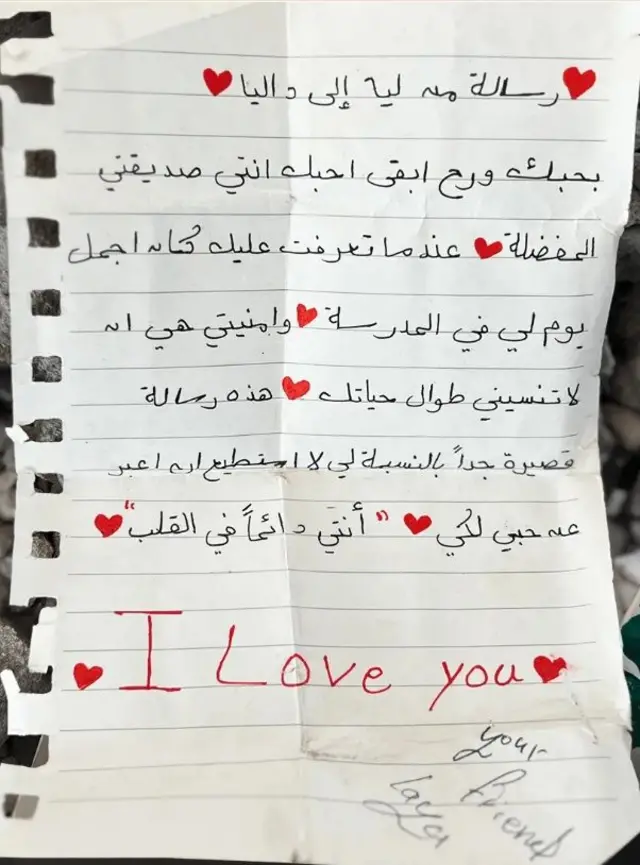 ❤رسالة من ليا إلى داليا❤
بحبك ورح ابقى احبك انتي صديقتي
المفضلة❤عندما تعرفت عليك كان اجمل
يوم لي في المدرسة❤وامنيتي هي ان
لا تنسيني طوال حياتك❤هذه رسالة
قصيرة جداً بالنسبة لي لا استطيع ان اعبر
عن حبي لكي❤"أنتي دائماً في القلب"❤
❤I Love you❤
your
Friend
Laya